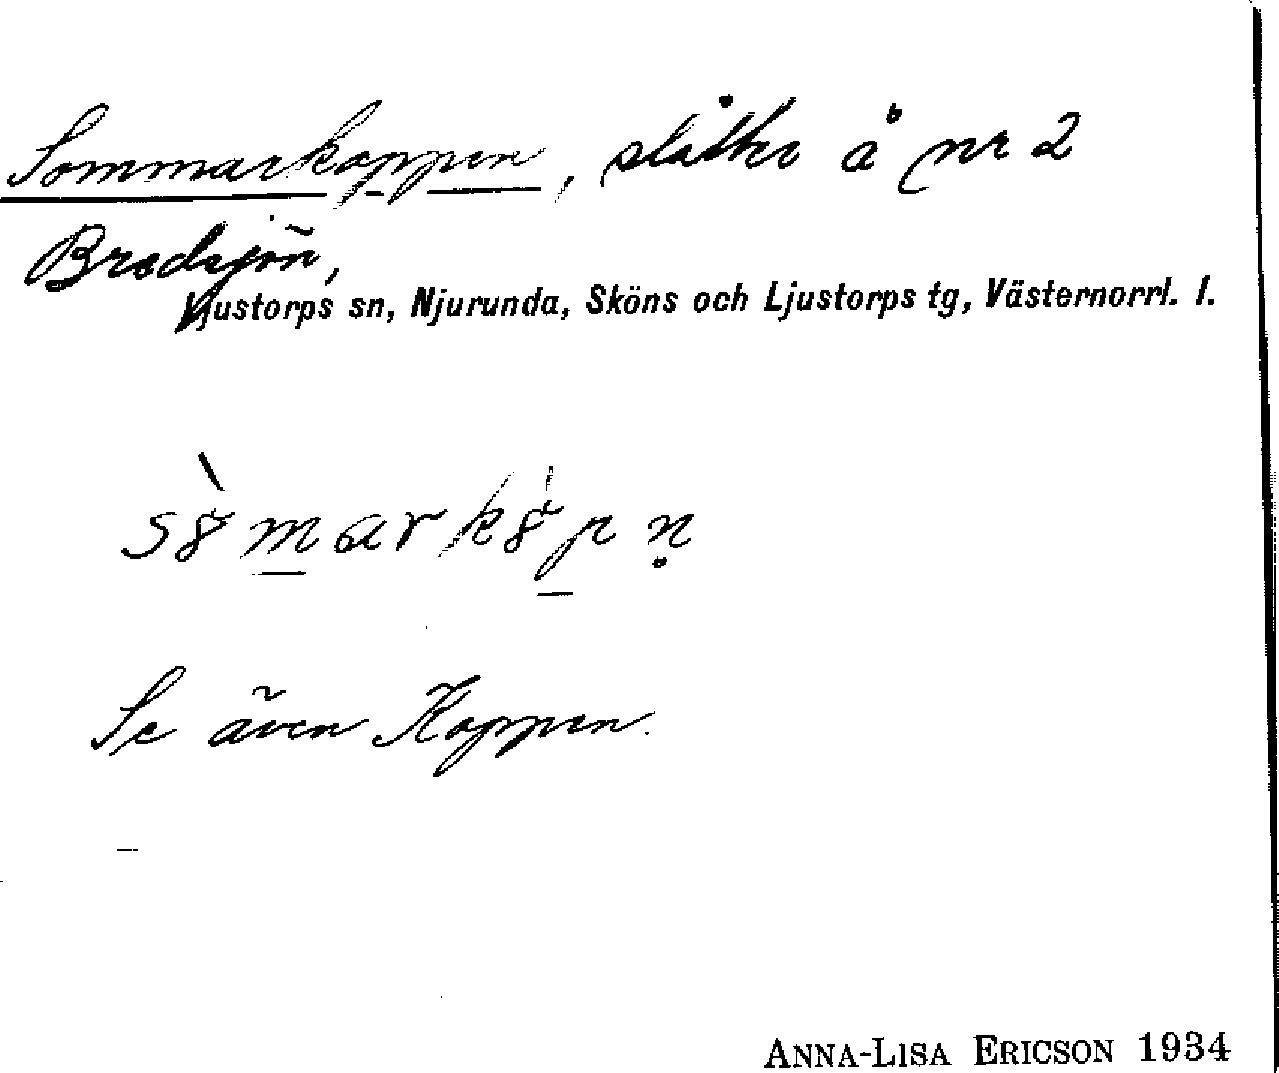 Sommarkoppen, slåtter å nr 2
Bredsjön,
Ljustorps sn, Njurunda, Sköns och Ljustorps tg, Västernorrl. l.
Se även Koppen.
ANNA-LISA ERICSON 1934